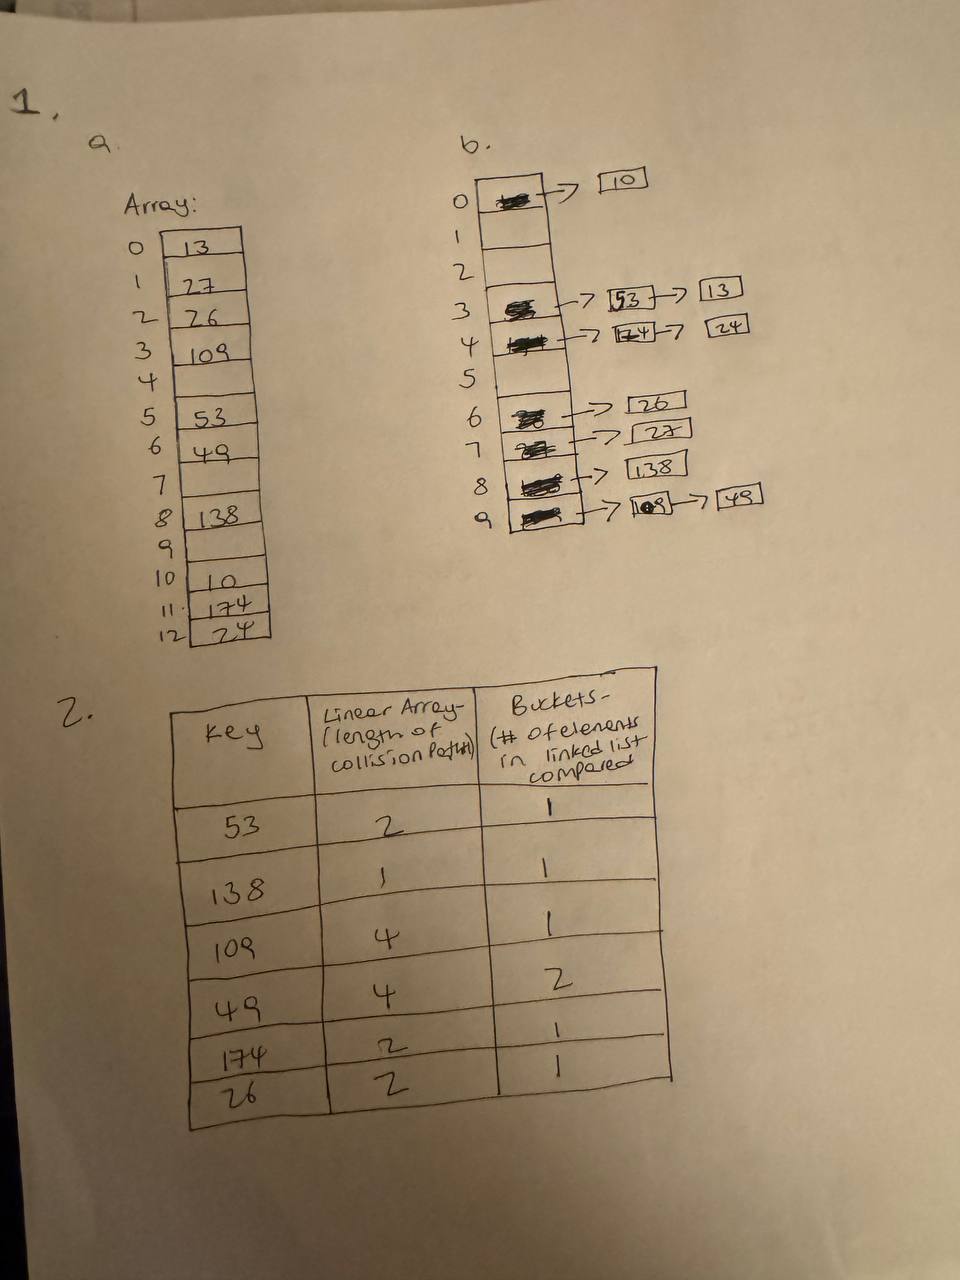 1.
a.
Array:
0 13
1 27
2 26
3 109
4
5 53
6 49
7
8 138
9
10 10
11. 174
12 24
b.
0 → 10
1
2
3 → 53 → 13
4 → 174 → 24
5
6 → 26
7 → 27
8 → 138
9 → 109 → 49
2.
Key
Linear Array-
(length of
collision Path)
Buckets-
(# of elements
in linked list
compared
53 2 1
138 1 1
109 4 1
49 4 2
174 2 1
26 2 1